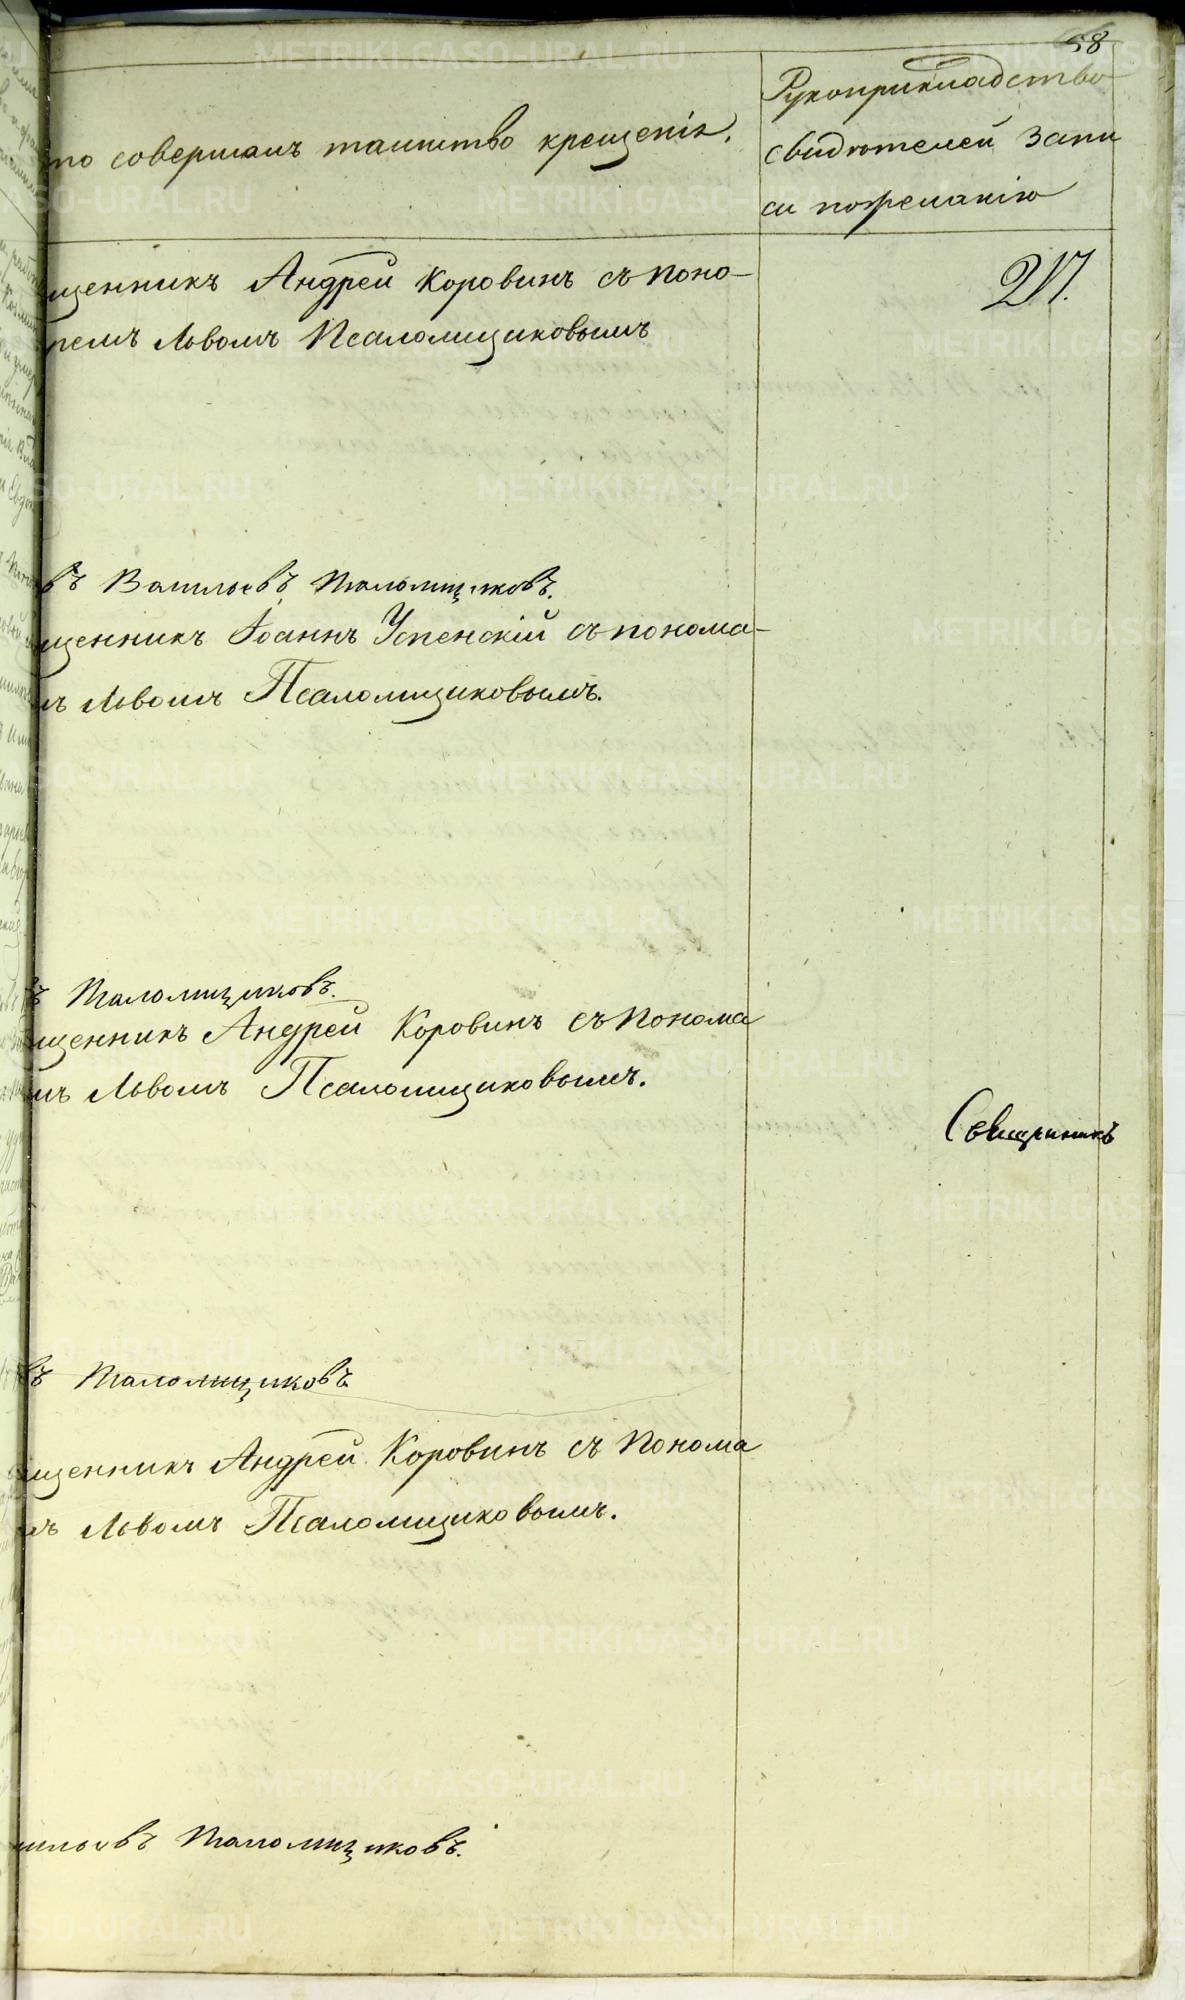 58
то совершалъ таинство крещенія.
Рукоприкладство
свидѣтелей запи
си по желанію
217.
щенникъ Андрей Коровинъ съ поно-
ремъ Львомъ Псаломщиковымъ
въ Васильевъ Псаломщиковъ.
щенникъ Іоаннъ Успенскій съ понома-
мъ Львомъ Псаломщиковымъ.
ъ Псаломщиковъ.
щенникъ Андрей Коровинъ съ понома
мъ Львомъ Псаломщиковымъ.
Священникъ
въ Псаломщиковъ
щенникъ Андрей Коровинъ съ понома
мъ Львомъ Псаломщиковымъ.
ильевъ Псаломщиковъ.
METRIKI.GASO-URAL.RU